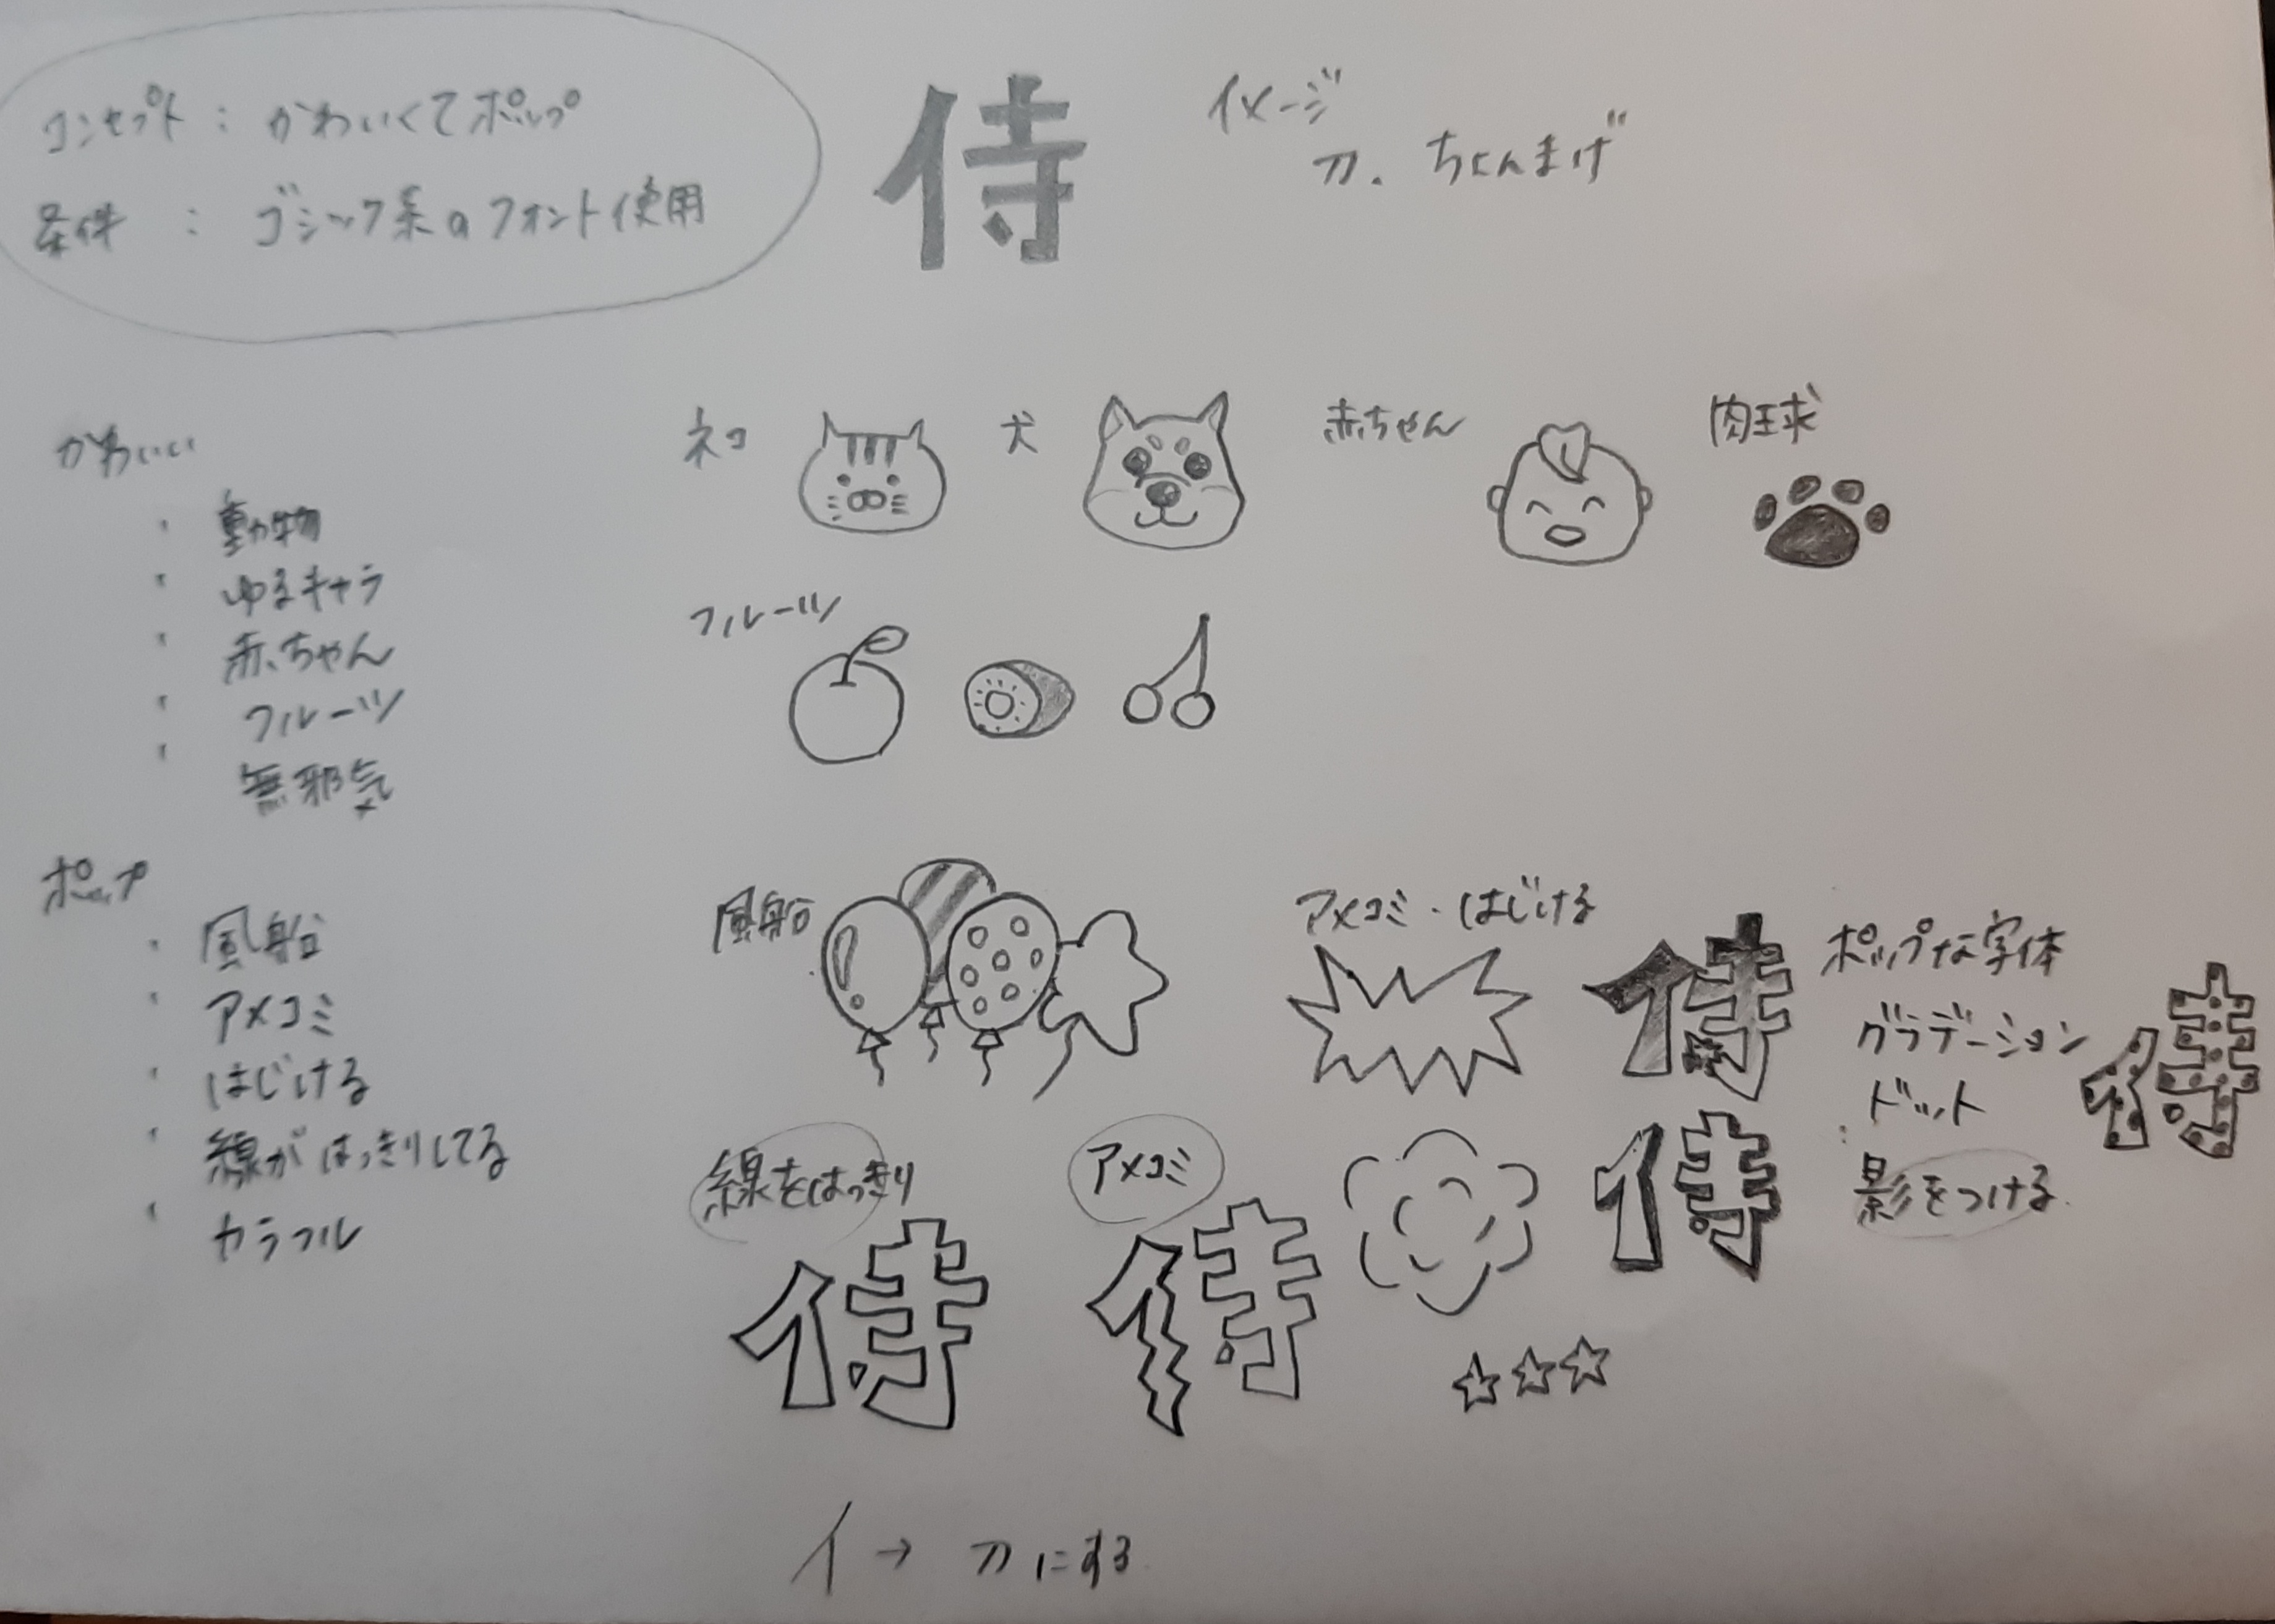 コンセプト：かわいくてポップ
条件：ゴシック系のフォント使用
侍
イメージ
刀、ちょんまげ
かわいい
・動物
・ゆるキャラ
・赤ちゃん
・フルーツ
・無邪気
ネコ
犬
赤ちゃん
肉球
フルーツ
ポップ
・風船
・アメコミ
・はじける
・線がはっきりしてる
・カラフル
風船
アメコミ・はじける
侍
ポップな字体
グラデーション
ドット
侍
影をつける
侍
線をはっきり
侍
アメコミ
侍
イ→刀にする